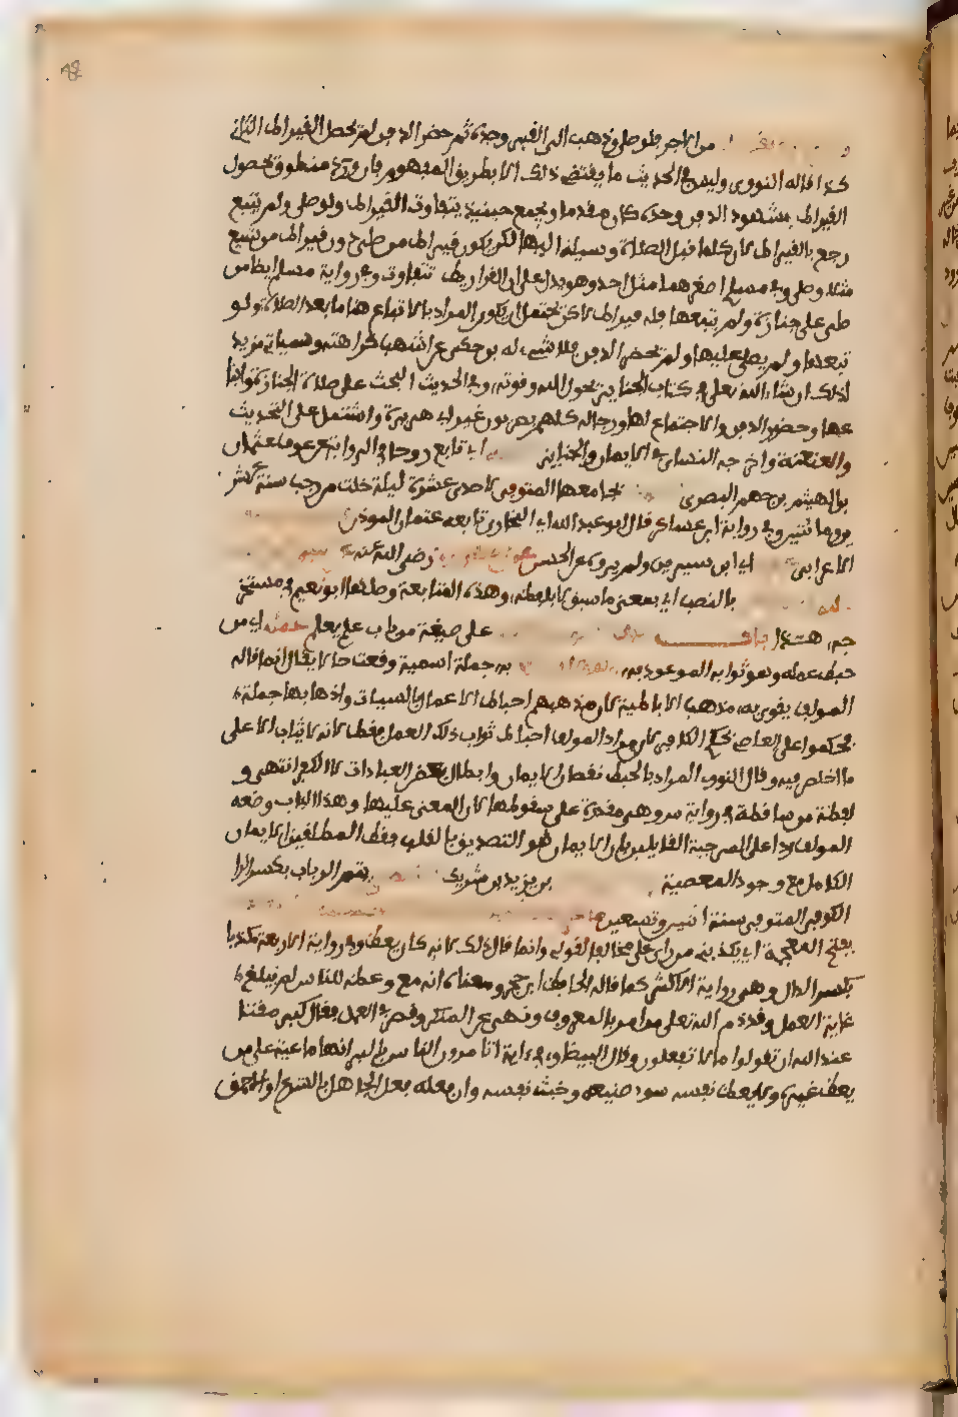 من الاجر فلو صلى وذهب الى القبر وحده ثم حضر الدفن لم يحصل القيراط الثاني
كذا قاله النووي وليس في الحديث ما يقتضي ذلك الا بطريق المفهوم فان ورد منطوق بحصول
القيراط بشهود الدفن وحده كان مقدما ويجمع حينئذ بتفاوت القيراط ولو صلى ولم يتبع
رجع بالقيراط لان كلما قبل الصلاة وسيلة اليها لكن يكون قيراط من صلى دون قيراط من تبع
مثلا وصلى وفي مسلم اصغرهما مثل احد وهو يدل على ان القراريط تتفاوت وفي رواية مسلم ايضا من
صلى على جنازة ولم يتبعها فله قيراط لاكن يحتمل ان يكون المراد بالاتباع هنا ما بعد الصلاة ولو
تبعها ولم يصل عليها ولم يحضر الدفن فلا شيء له بل حكي عن اشهب كراهته وسياتي مزيد
لذلك ان شاء الله تعلى في كتاب الجنايز بحول الله وقوته وفي الحديث الحث على صلاة الجنازة واتبا
عها وحضور الدفن والاجتماع لها ورجاله كلهم بصريون غير ابي هريرة واشتمل على التحديث
والعنعنة واخرجه النساي في الايمان والجنايز اي تابع روحا في الرواية عن عوف عثمان
بن الهيثم بن جهم البصري بجامعها المتوفى لاحدى عشرة ليلة خلت من رجب سنة عشر
ين وماتين وفي رواية ابن عساكر قال ابو عبد الله اي البخاري تابعه عثمان الموذن
الاعرابي اي ابن سيرين ولم يروه عن الحسن رضي الله عنه
بالنصب اي بمعنى ما سبق لا بلفظه وهذه المتابعة وصلها ابو نعيم في مستخر
جه هذا باب على صيغة من باب علم يعلم عمله اي من
حبط عمله وهو ثوابه الموعود به به جملة اسمية وقعت حالا لا يقال ان ما قاله
المولف يقوي به مذهب الاباطية لان مذهبهم احباط الاعمال بالسيات واذهابها جملة
فحكموا على العاصي بحكم الكافر لان مراد المولف احباط ثواب ذلك العمل فقط لانه لا يثاب الا على
ما اخلص فيه وقال النووي المراد بالحبط نقصان الايمان وابطال بعض العبادات لا الكفر انتهى و
لفظة من ساقطة في رواية س وهي مقدرة على سقوطها لان المعنى عليها وهذا الباب وضعه
المولف ردا على المرجية القايلين بان الايمان هو التصديق بالقلب فقط المطلقين الايمان
الكامل مع وجود المعصية بن يزيد بن شريك تيم الرباب بكسر الرا
الكوفي المتوفى سنة اثنين وتسعين
بفتح المعجمة اي يكذبني من راى عملي مخالفا لقولي وانما قال ذلك لانه كان يعظ وفي رواية الاربعة مكذبا
بكسر الدال وهي رواية الاكثر كما قاله الحافظ ابن حجر ومعناه انه مع وعظه للناس لم يبلغ
غاية العمل وقد ذم الله تعلى من امر بالمعروف ونهى عن المنكر وقصر في العمل فقال كبر مقتا
عند الله ان تقولوا ما لا تفعلون وقال البيضاوي في اية اتامرون الناس بالبر انها ناعية على من
يعظ غيره ولا يعظ نفسه سوء صنيعه وخبث نفسه وان فعله فعل الجاهل بالشرع او الاحمق